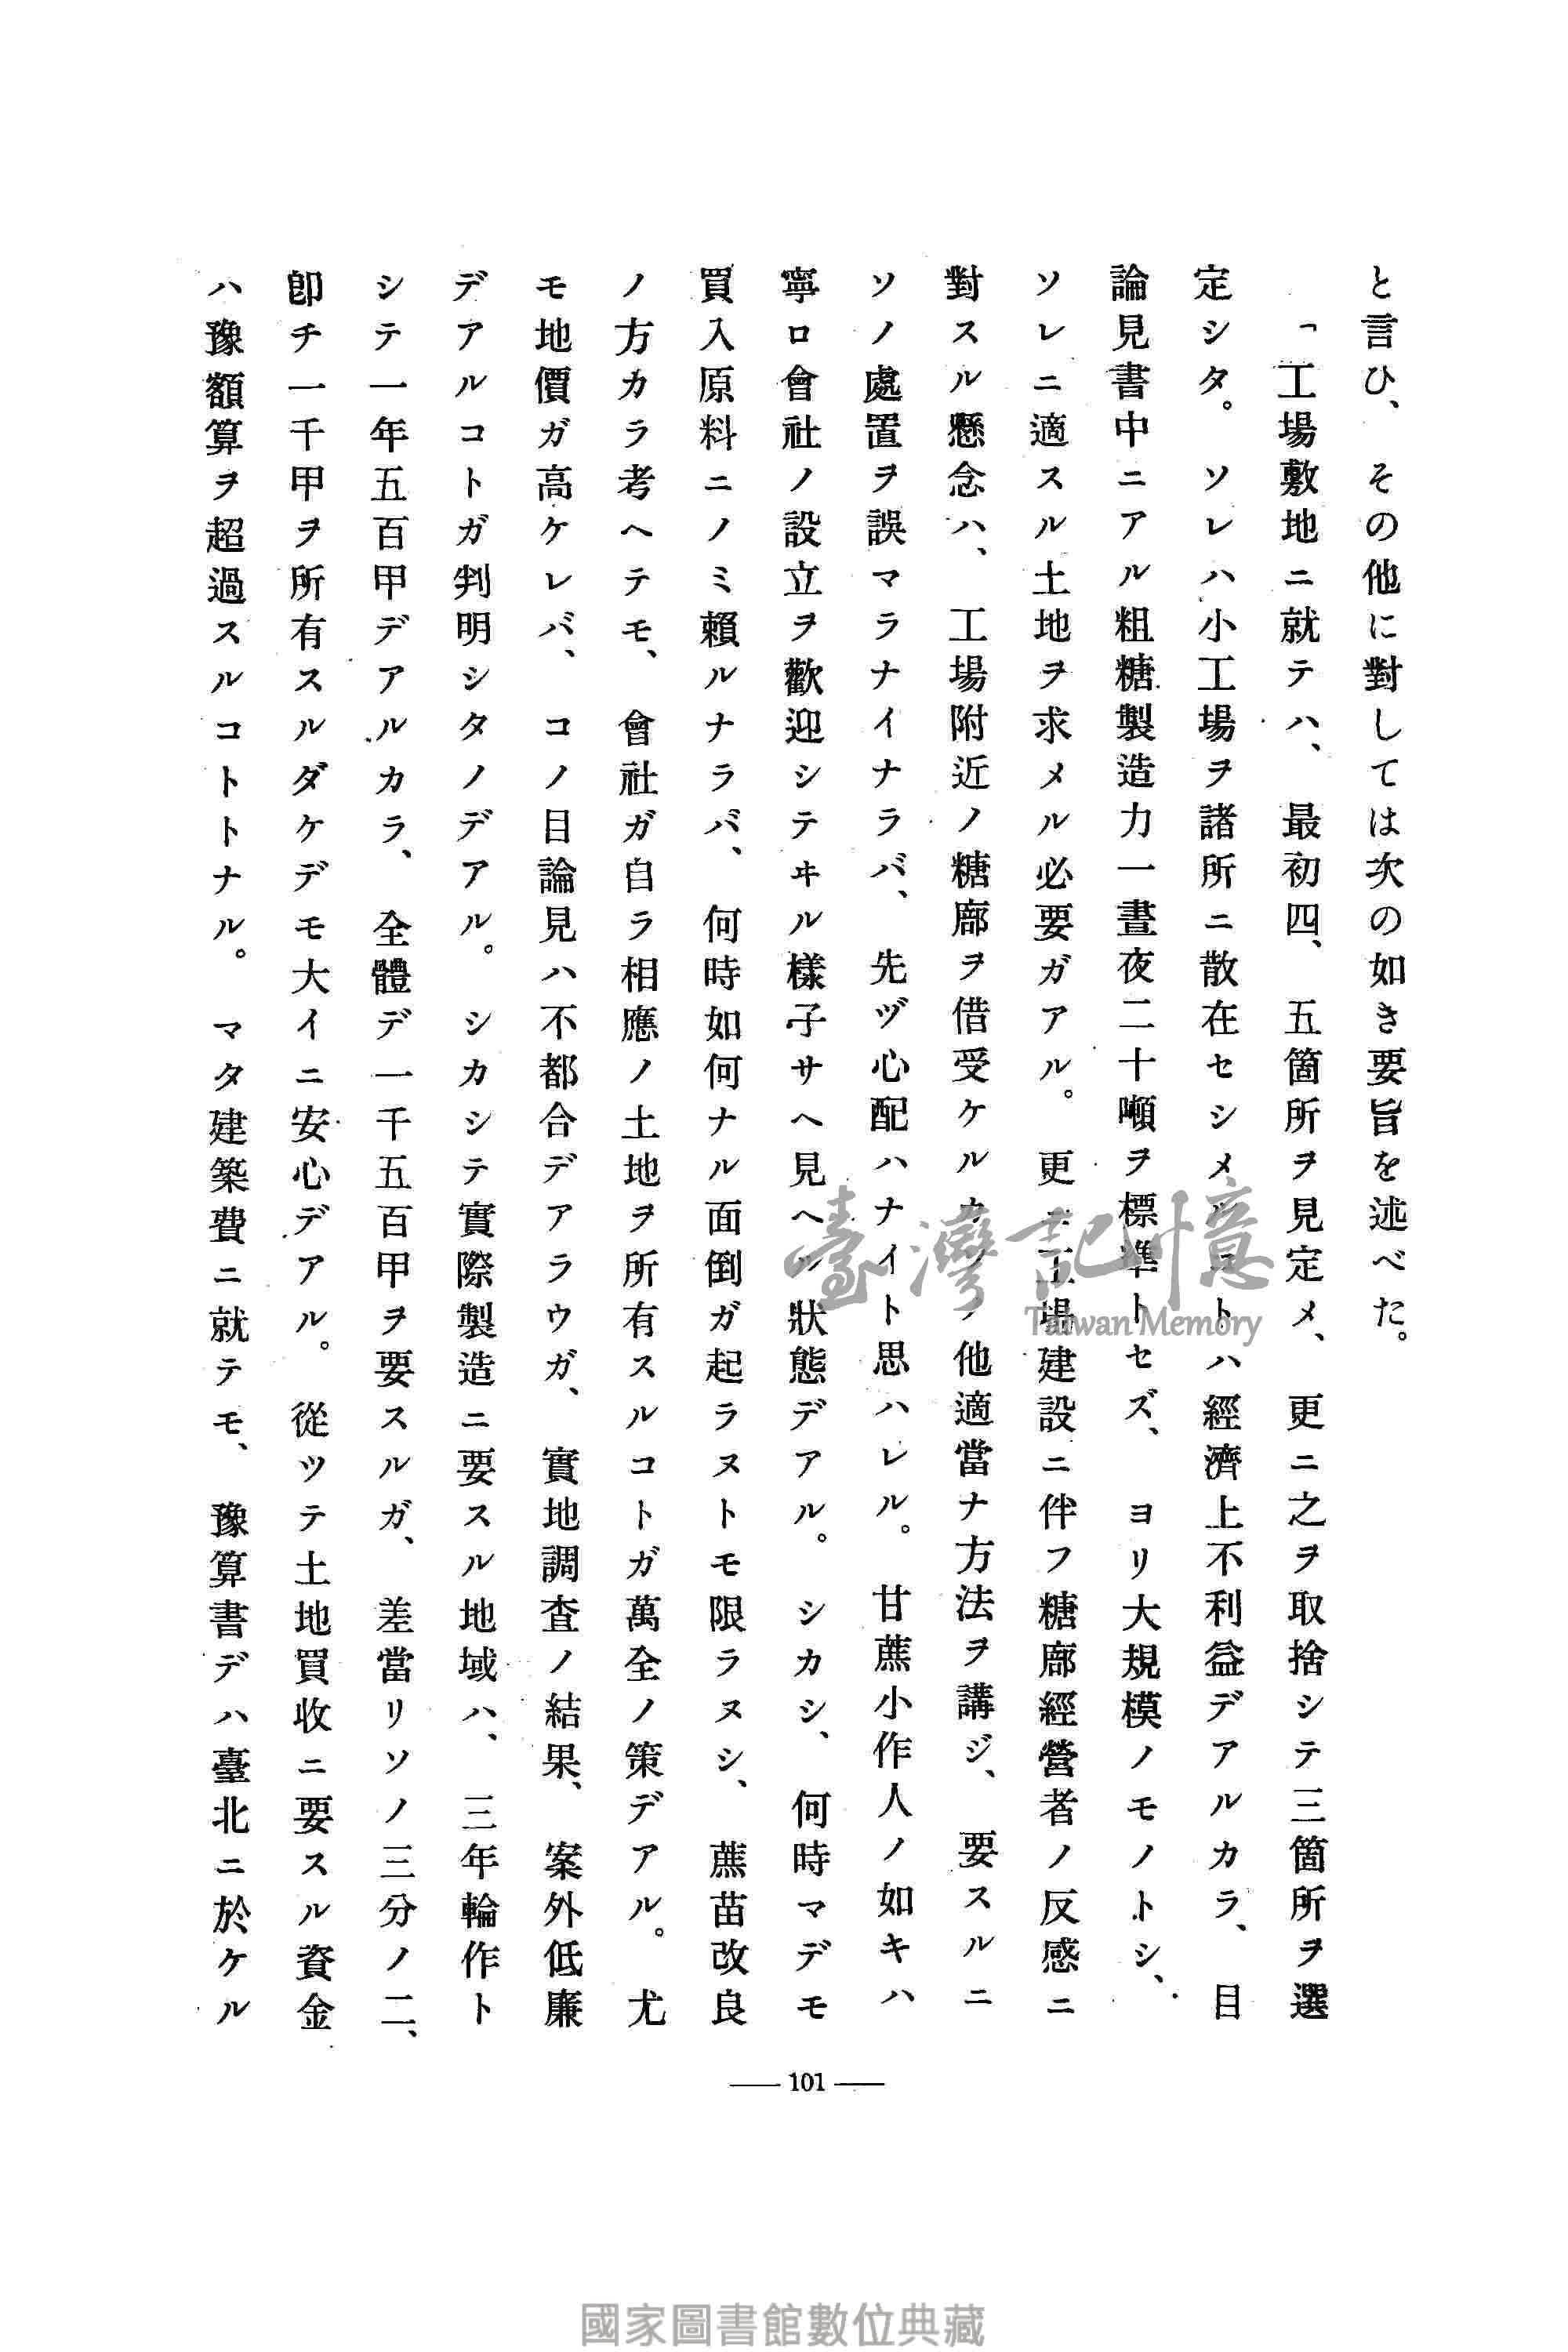 と言ひ、その他に對しては次の如き要旨を述べた。
「工場敷地ニ就テハ、最初四、五箇所ヲ見定メ、更ニ之ヲ取捨シテ三箇所ヲ選
定シタ。ソレハ小工場ヲ諸所ニ散在セシメルコトハ經濟上不利益デアルカラ、目
論見書中ニアル粗糖製造力一晝夜二十噸ヲ標準トセズ、ヨリ大規模ノモノトシ、
ソレニ適スル土地ヲ求メル必要ガアル。更ニ工場建設ニ伴フ糖廍經營者ノ反感ニ
對スル懸念ハ、工場附近ノ糖廍ヲ借受ケルカソノ他適當ナ方法ヲ講ジ、要スルニ
ソノ處置ヲ誤マラナイナラバ、先ヅ心配ハナイト思ハレル。甘蔗小作人ノ如キハ
寧ロ會社ノ設立ヲ歡迎シテヰル樣子サヘ見ヘル狀態デアル。シカシ、何時マデモ
買入原料ニノミ賴ルナラバ、何時如何ナル面倒ガ起ラヌトモ限ラヌシ、蔗苗改良
ノ方カラ考ヘテモ、會社ガ自ラ相應ノ土地ヲ所有スルコトガ萬全ノ策デアル。尤
モ地價ガ高ケレバ、コノ目論見ハ不都合デアラウガ、實地調查ノ結果、案外低廉
デアルコトガ判明シタノデアル。シカシテ實際製造ニ要スル地域ハ、三年輪作ト
シテ一年五百甲デアルカラ、全體デ一千五百甲ヲ要スルガ、差當リソノ三分ノ二、
卽チ一千甲ヲ所有スルダケデモ大イニ安心デアル。從ツテ土地買收ニ要スル資金
ハ豫額算ヲ超過スルコトトナル。マタ建築費ニ就テモ、豫算書デハ臺北ニ於ケル
101
臺灣記憶
Taiwan Memory
國家圖書館數位典藏